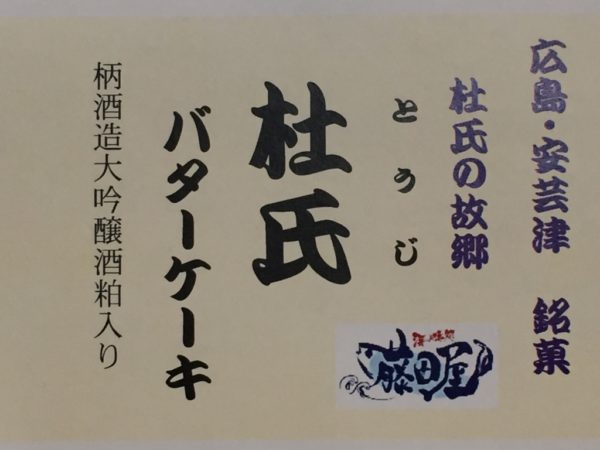 広島・安芸津 銘菓
杜氏の故郷
とうじ
杜氏
バターケーキ
柄酒造大吟醸酒粕入り
藤田屋